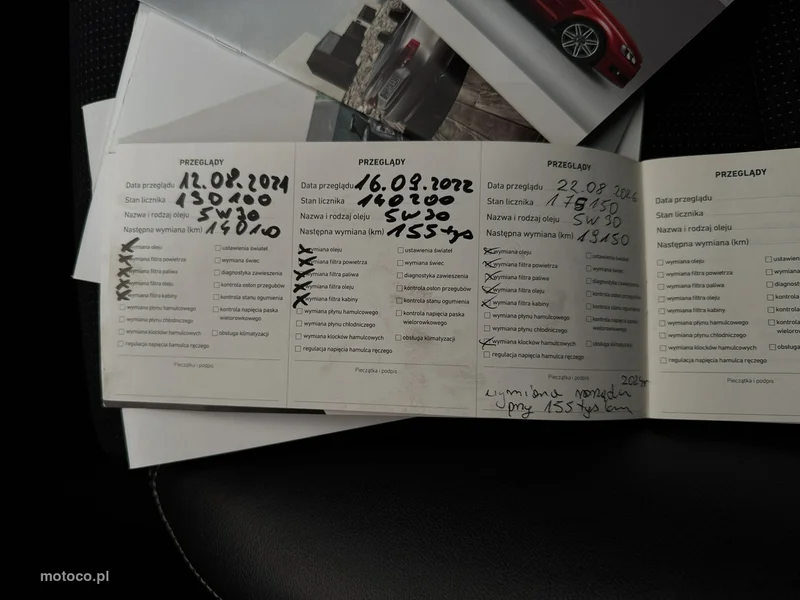 PRZEGLĄDY
Data przeglądu 12.08.2021
Stan licznika 130100
Nazwa i rodzaj oleju 5W30
Następna wymiana (km) 14010
wymiana oleju
wymiana filtra powietrza
wymiana filtra paliwa
wymiana filtra oleju
wymiana filtra kabiny
wymiana płynu hamulcowego
wymiana płynu chłodniczego
wymiana klocków hamulcowych
regulacja napięcia hamulca ręcznego
ustawienie świateł
wymiana świec
diagnostyka zawieszenia
kontrola osłon przegubów
kontrola stanu ogumienia
kontrola napięcia paska
wielorowkowego
obsługa klimatyzacji
Pieczątka i podpis
PRZEGLĄDY
Data przeglądu 16.09.2022
Stan licznika 140200
Nazwa i rodzaj oleju 5W30
Następna wymiana (km) 155 tys
wymiana oleju
wymiana filtra powietrza
wymiana filtra paliwa
wymiana filtra oleju
wymiana filtra kabiny
wymiana płynu hamulcowego
wymiana płynu chłodniczego
wymiana klocków hamulcowych
regulacja napięcia hamulca ręcznego
ustawienie świateł
wymiana świec
diagnostyka zawieszenia
kontrola osłon przegubów
kontrola stanu ogumienia
kontrola napięcia paska
wielorowkowego
obsługa klimatyzacji
Pieczątka i podpis
PRZEGLĄDY
Data przeglądu 22.08
Stan licznika 175150
Nazwa i rodzaj oleju 5W30
Następna wymiana (km) 19150
wymiana oleju
wymiana filtra powietrza
wymiana filtra paliwa
wymiana filtra oleju
wymiana filtra kabiny
wymiana płynu hamulcowego
wymiana płynu chłodniczego
wymiana klocków hamulcowych
regulacja napięcia hamulca ręcznego
ustawienie świateł
wymiana świec
diagnostyka zawieszenia
kontrola osłon przegubów
kontrola stanu ogumienia
kontrola napięcia paska
wielorowkowego
obsługa klimatyzacji
Pieczątka i podpis
wymiana
przy 155 tys km
PRZEGLĄDY
Data przeglądu
Stan licznika
Nazwa i rodzaj oleju
Następna wymiana (km)
wymiana oleju
wymiana filtra powietrza
wymiana filtra paliwa
wymiana filtra oleju
wymiana filtra kabiny
wymiana płynu hamulcowego
wymiana płynu chłodniczego
wymiana klocków hamulcowych
regulacja napięcia hamulca ręcznego
Pieczątka i podpis
motoco.pl